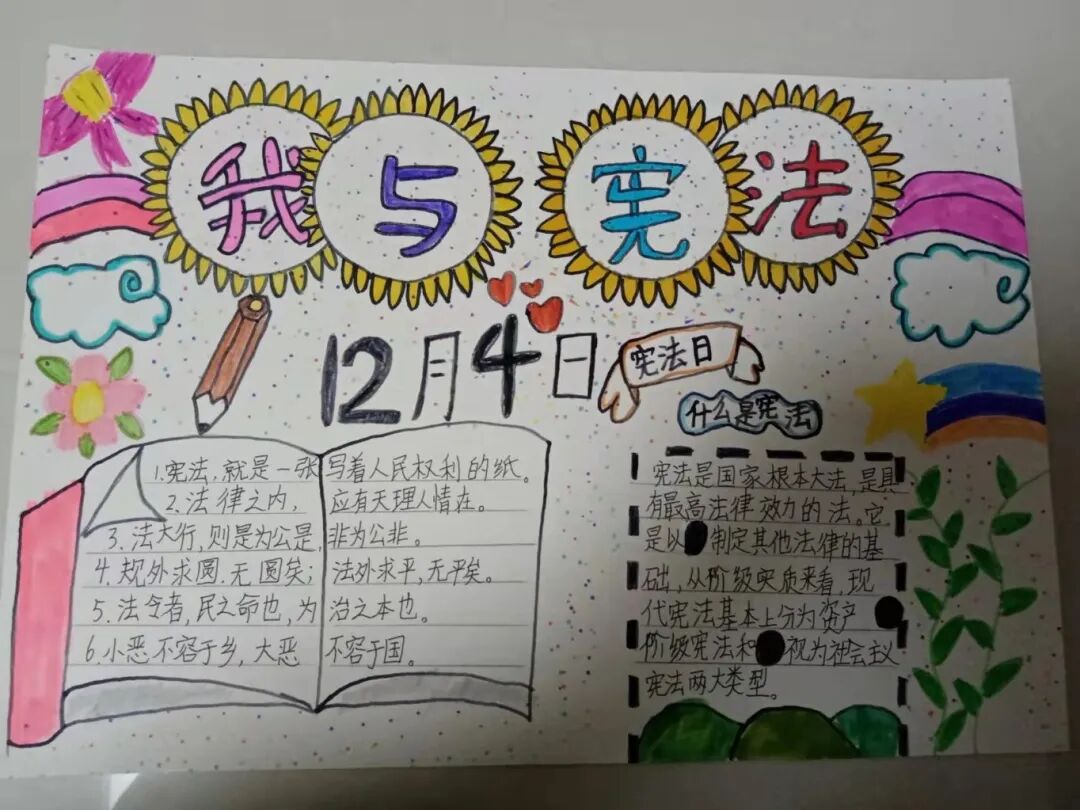 我与宪法
12月4日
宪法日
什么是宪法
1.宪法,就是一张写着人民权利的纸。
2.法律之内,应有天理人情在。
3.法大行,则是为公是,非为公非。
4.规外求圆.无圆矣;法外求平,无平矣。
5.法令者,民之命也,为治之本也。
6.小恶不容于乡,大恶不容于国。
宪法是国家根本大法,是具
有最高法律效力的法。它
是以制定其他法律的基
础,从阶级实质来看,现
代宪法基本上分为资产
阶级宪法和视为社会主义
宪法两大类型。